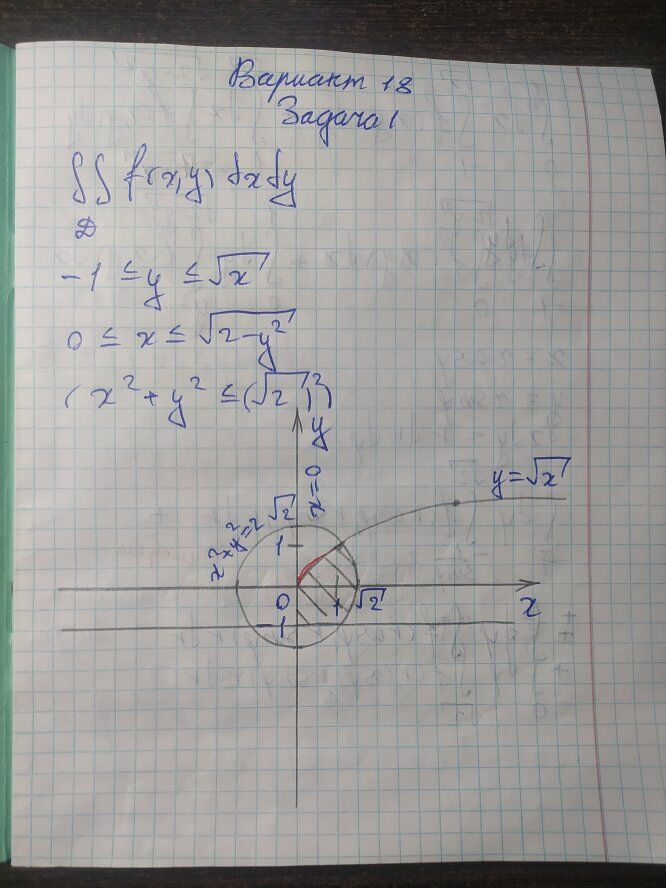 Вариант 18
Задача 1
∫∫ f(x,y) dxdy
D
-1 ≤ y ≤ √x
0 ≤ x ≤ √2-y²
( x² + y² ≤ (√2)²)
y
x=0
y=√x
x² x y² = 2
√2
1
0
1
√2
x
-1